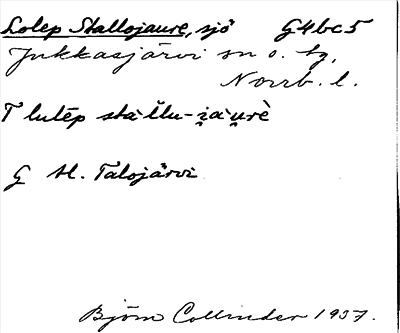 Lolep Stallojaure, sjö G4bc5
Jukkasjärvi sn o. tg,
Norrb. l.
T lulēp stàl̆lu-i̯àu̯rè
G st. Talojärvi
Björn Collinder 1937.